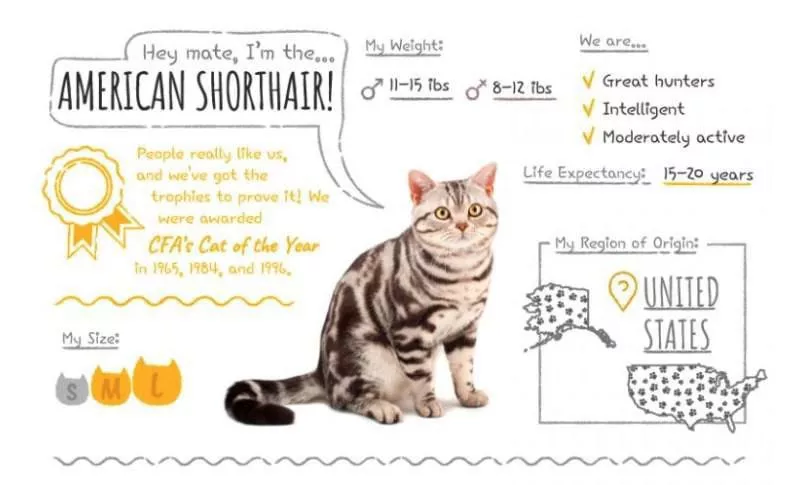 Hey mate, I'm the...
AMERICAN SHORTHAIR!
People really like us,
and we've got the
trophies to prove it! We
were awarded
CFA's Cat of the Year
in 1965, 1984, and 1996.
My Size:
S M L
My Weight:
♂ 11–15 lbs ♂ 8–12 lbs
We are...
✓ Great hunters
✓ Intelligent
✓ Moderately active
Life Expectancy: 15–20 years
My Region of Origin:
UNITED
STATES